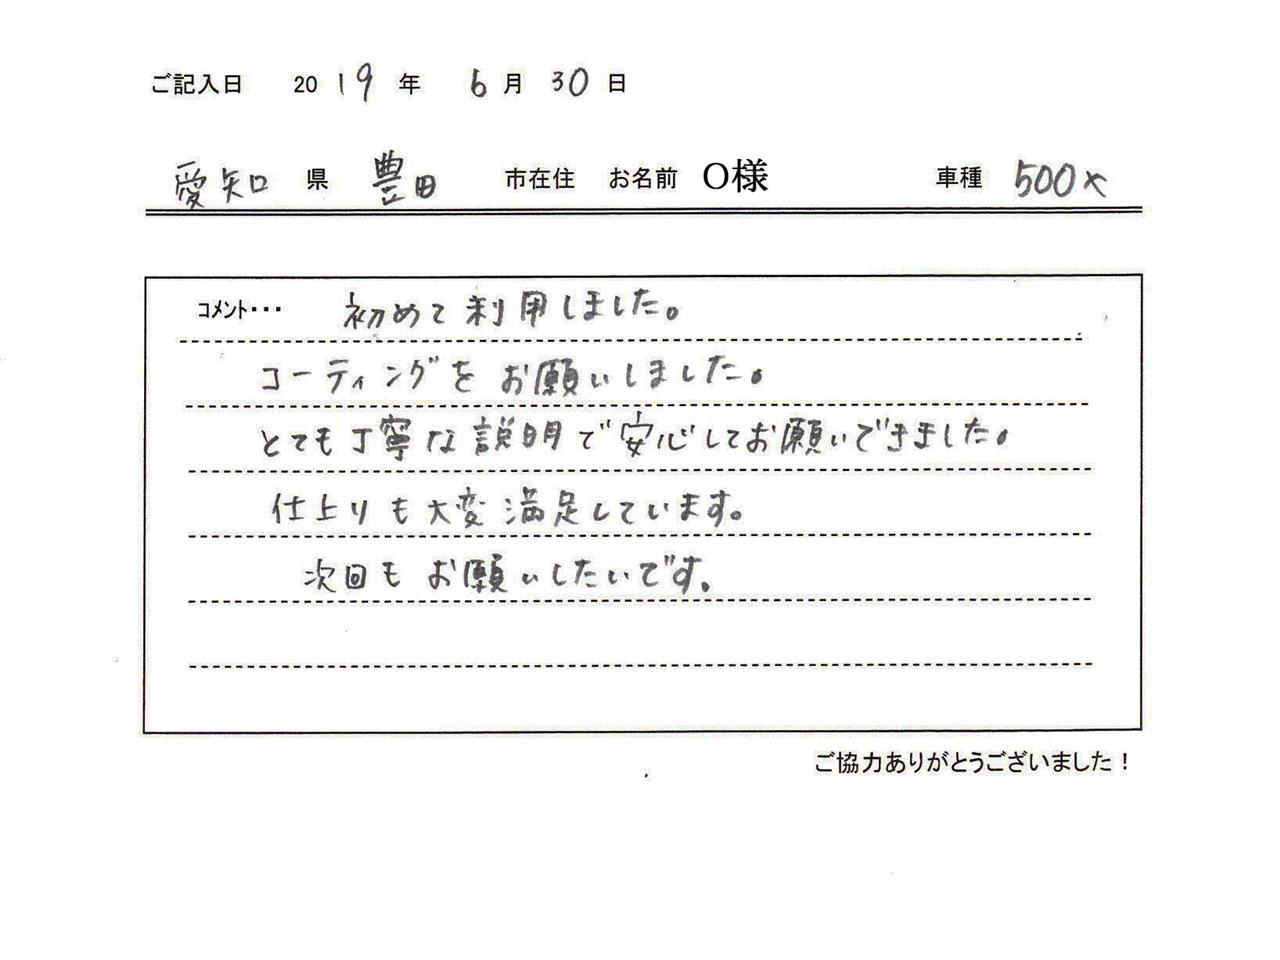 ご記入日 2019年 6月30日
愛知県 豊田市在住 お名前 O様 車種 500X
コメント・・・ 初めて利用しました。
コーティングをお願いしました。
とても丁寧な説明で安心してお願いできました。
仕上りも大変満足しています。
次回もお願いしたいです。
ご協力ありがとうございました!